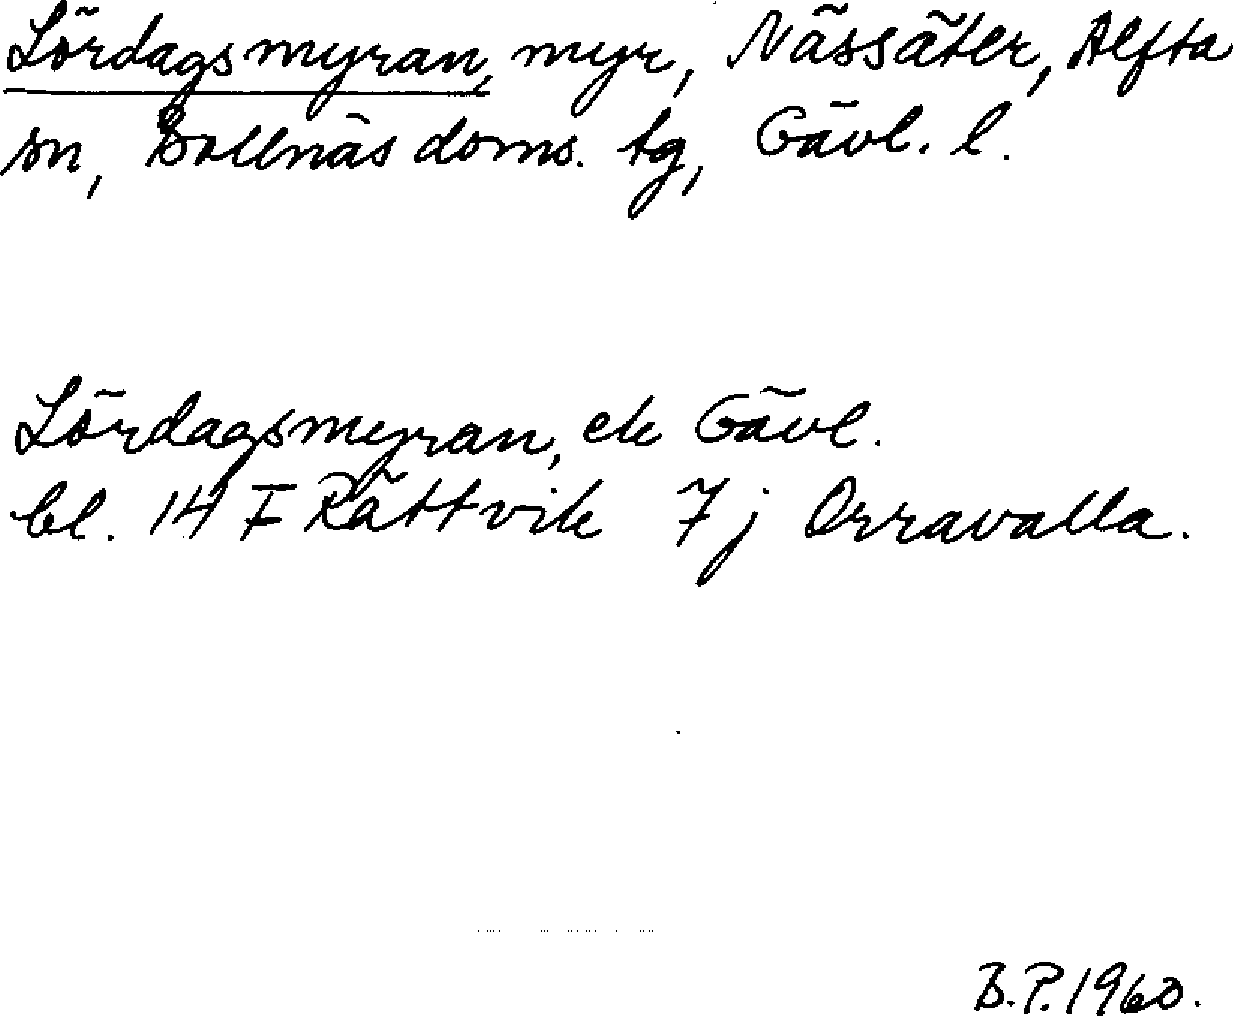 Lördagsmyran, myr, Nässäter, Alfta
sn, Bollnäs doms. tg, Gävl. l.
Lördagsmyran, ek Gävl.
bl. 14 F Rättvik 7 j Orravalla.
B.P. 1960.